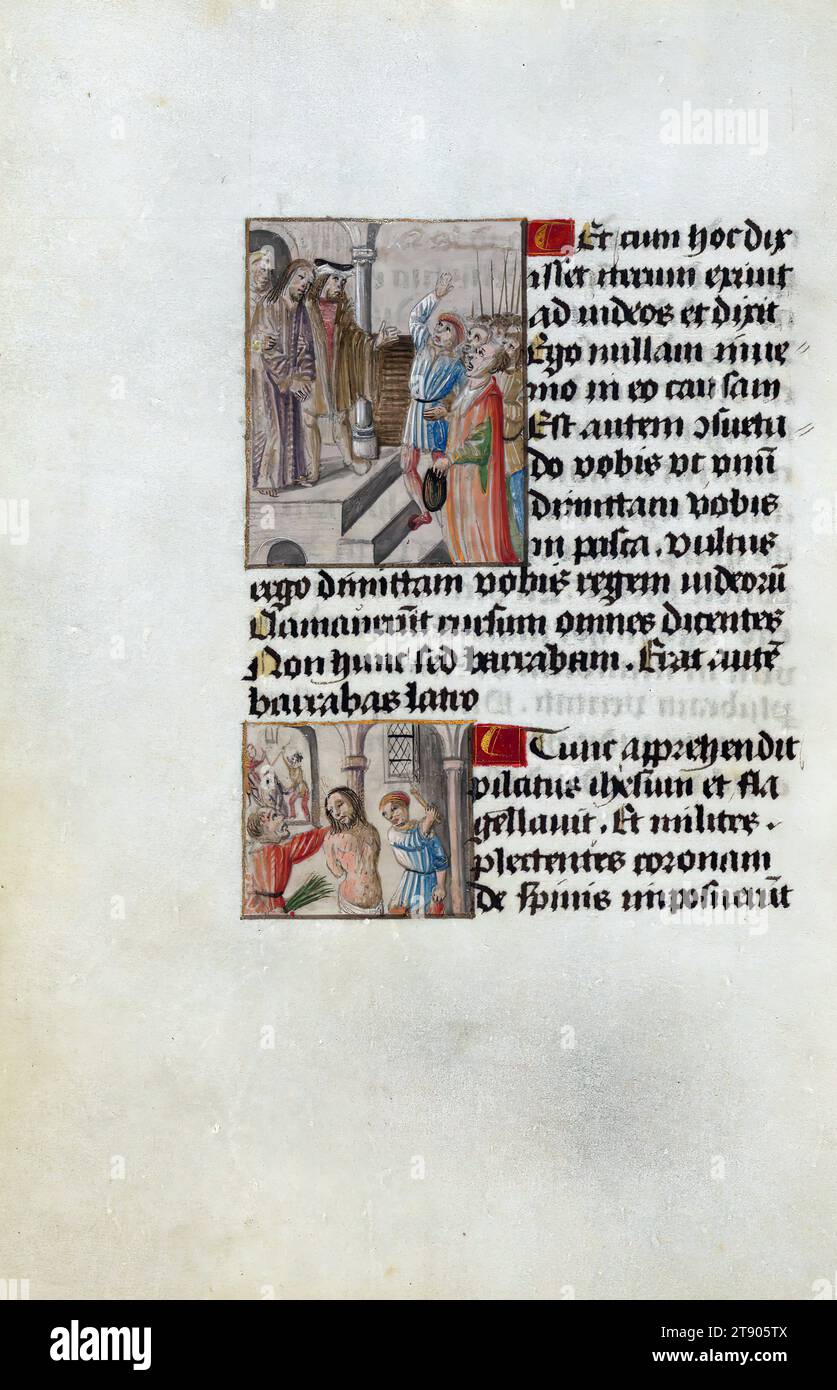 Et cum hoc dix
isset iterum exiuit
ad iudeos et dixit
Ego nullam inue
nio in eo causam
Est autem ɔsuetu
do vobis vt vnū
dimittam vobis
in pasca. Vultis
ergo dimittam vobis regem iudeorū
Clamauerūt rursum omnes dicentes
Non hunc sed barraban. Erat autē
barrabas latro
Tunc apprehendit
pilatus ihesum et fla
gellauit. Et milites
plectentes coronam
de spinis imposuerūt
alamy
alamy
Image ID: 2T905TX
www.alamy.com